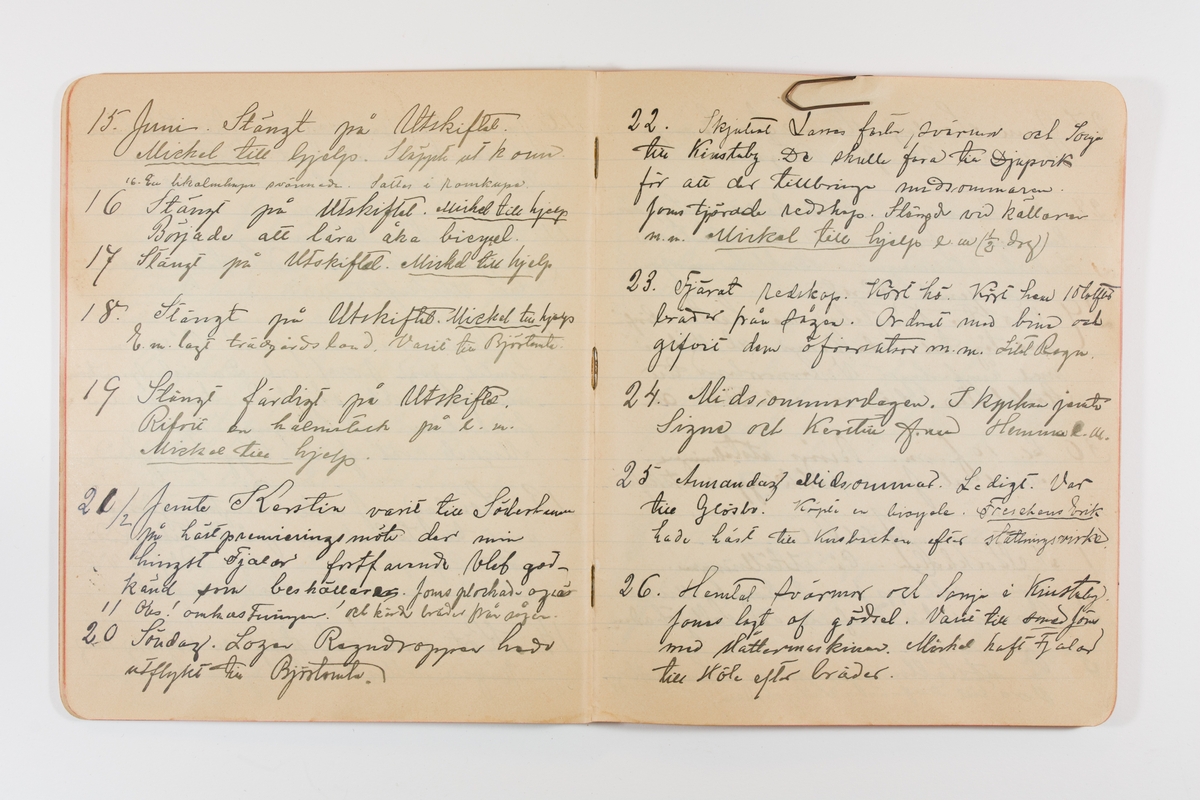 15. Juni. Stängt på Utskiftet.
Mickel till hjelp. Släppt ut korn.
16. En svärmade. Sattes i ramkupa.
16 Stängt på Utskiftet. Mickel till hjelp
Började att lära åka bicykel.
17 Stängt på Utskiftet. Mickel till hjelp
18. Stängt på Utskiftet. Mickel till hjelp
E.m. lagt trädgårdsland. Varit till Björtomta.
19 Stängt färdigt på Utskiftet.
Rifvit en halmstack på e.m.
Mickel till hjelp.
21/2 Jemte Kerstin varit till Söderhamn
på hästpremieringsmöte der min
hingst Fjalar fortfarande blef god-
känd som beskällare. Jons plockade ogräs
11 Obs! omkastningen! och körde bräder från sågen.
20 Söndag. Logen Regndroppen hade
utflykt till Björtomta.
22. Skjutsat Larses fader, svärmor och Sonja
till Kinstaby. De skulle fara till Djupvik
för att der tillbringa midsommaren.
Jons tjärade redskap. Stängde vid källaren
m.m. Mickel till hjelp e.m (1/2 dag)
23. Tjärat redskap. Kört hö. Kört hem 10 tolfter
bräder från sågen. Ordnat med bina och
gifvit dem öfversatser m.m. Litet Regn.
24. Midsommardagen. I kyrkan jemte
Signe och Kerstin f.m. Hemma e.m.
25 Annandag Midsommar. Ledigt. Var
till Glösbo. Köpte en bicycle.
hade häst till Kinsbacken efter ställningsvirke.
26. Hemtat svärmor och Sonja i Kinstaby.
Jons lagt af gödsel. Varit till smedjan
med slåttermaskinen. Mickel haft Fjalar
till Höle efter bräder.